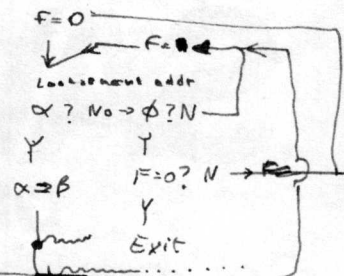 F=0
F=
Look at next addr
α ? No → φ ? N
Y Y
α ⇒ β F=0? N →
Y
Exit